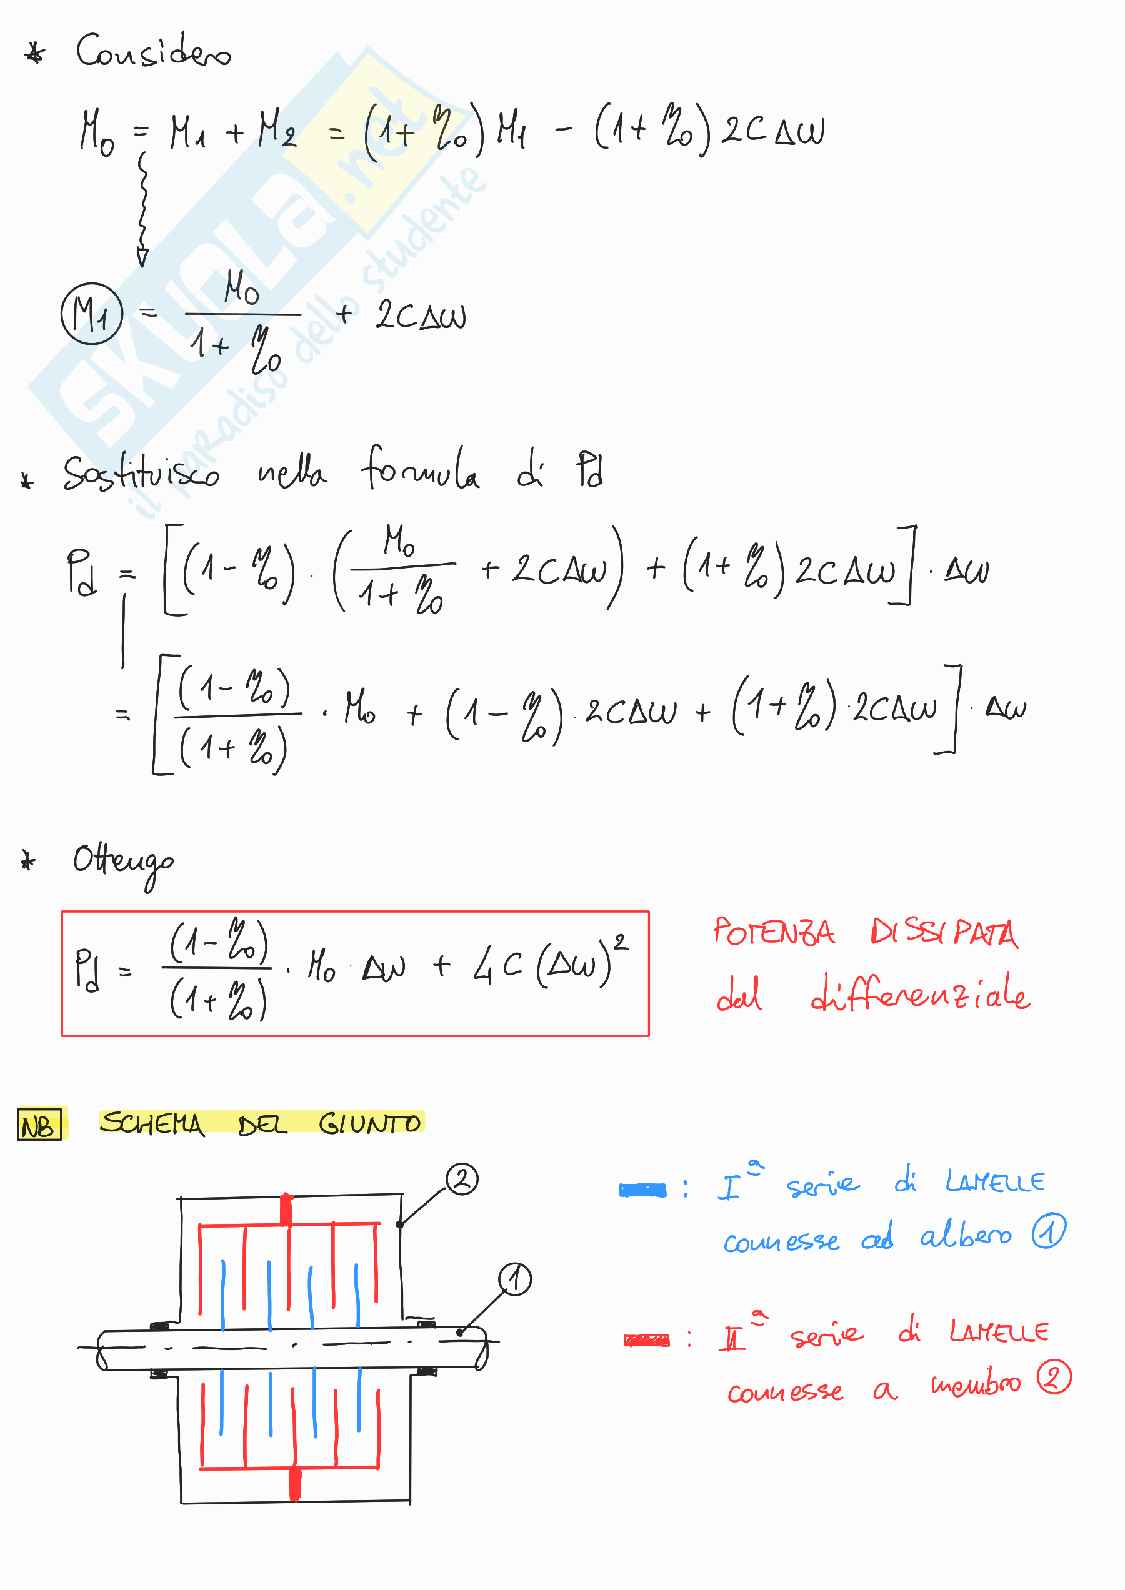 * Considero
M₀ = M₁ + M₂ = (1 + η₀) M₁ - (1 + η₀) 2CΔω
M₁ = M₀ / (1 + η₀) + 2CΔω
* Sostituisco nella formula di Pd
Pd = [(1 - η₀) · (M₀ / (1 + η₀) + 2CΔω) + (1 + η₀) 2CΔω] · Δω
= [(1 - η₀) / (1 + η₀) · M₀ + (1 - η₀) · 2CΔω + (1 + η₀) · 2CΔω] · Δω
* Ottengo
Pd = (1 - η₀) / (1 + η₀) · M₀ · Δω + 4C (Δω)²
POTENZA DISSIPATA
dal differenziale
NB SCHEMA DEL GIUNTO
2
1
: Iª serie di LAMELLE
connesse ad albero 1
: IIª serie di LAMELLE
connesse a membro 2
SKUOLA.net
il paradiso dello studente